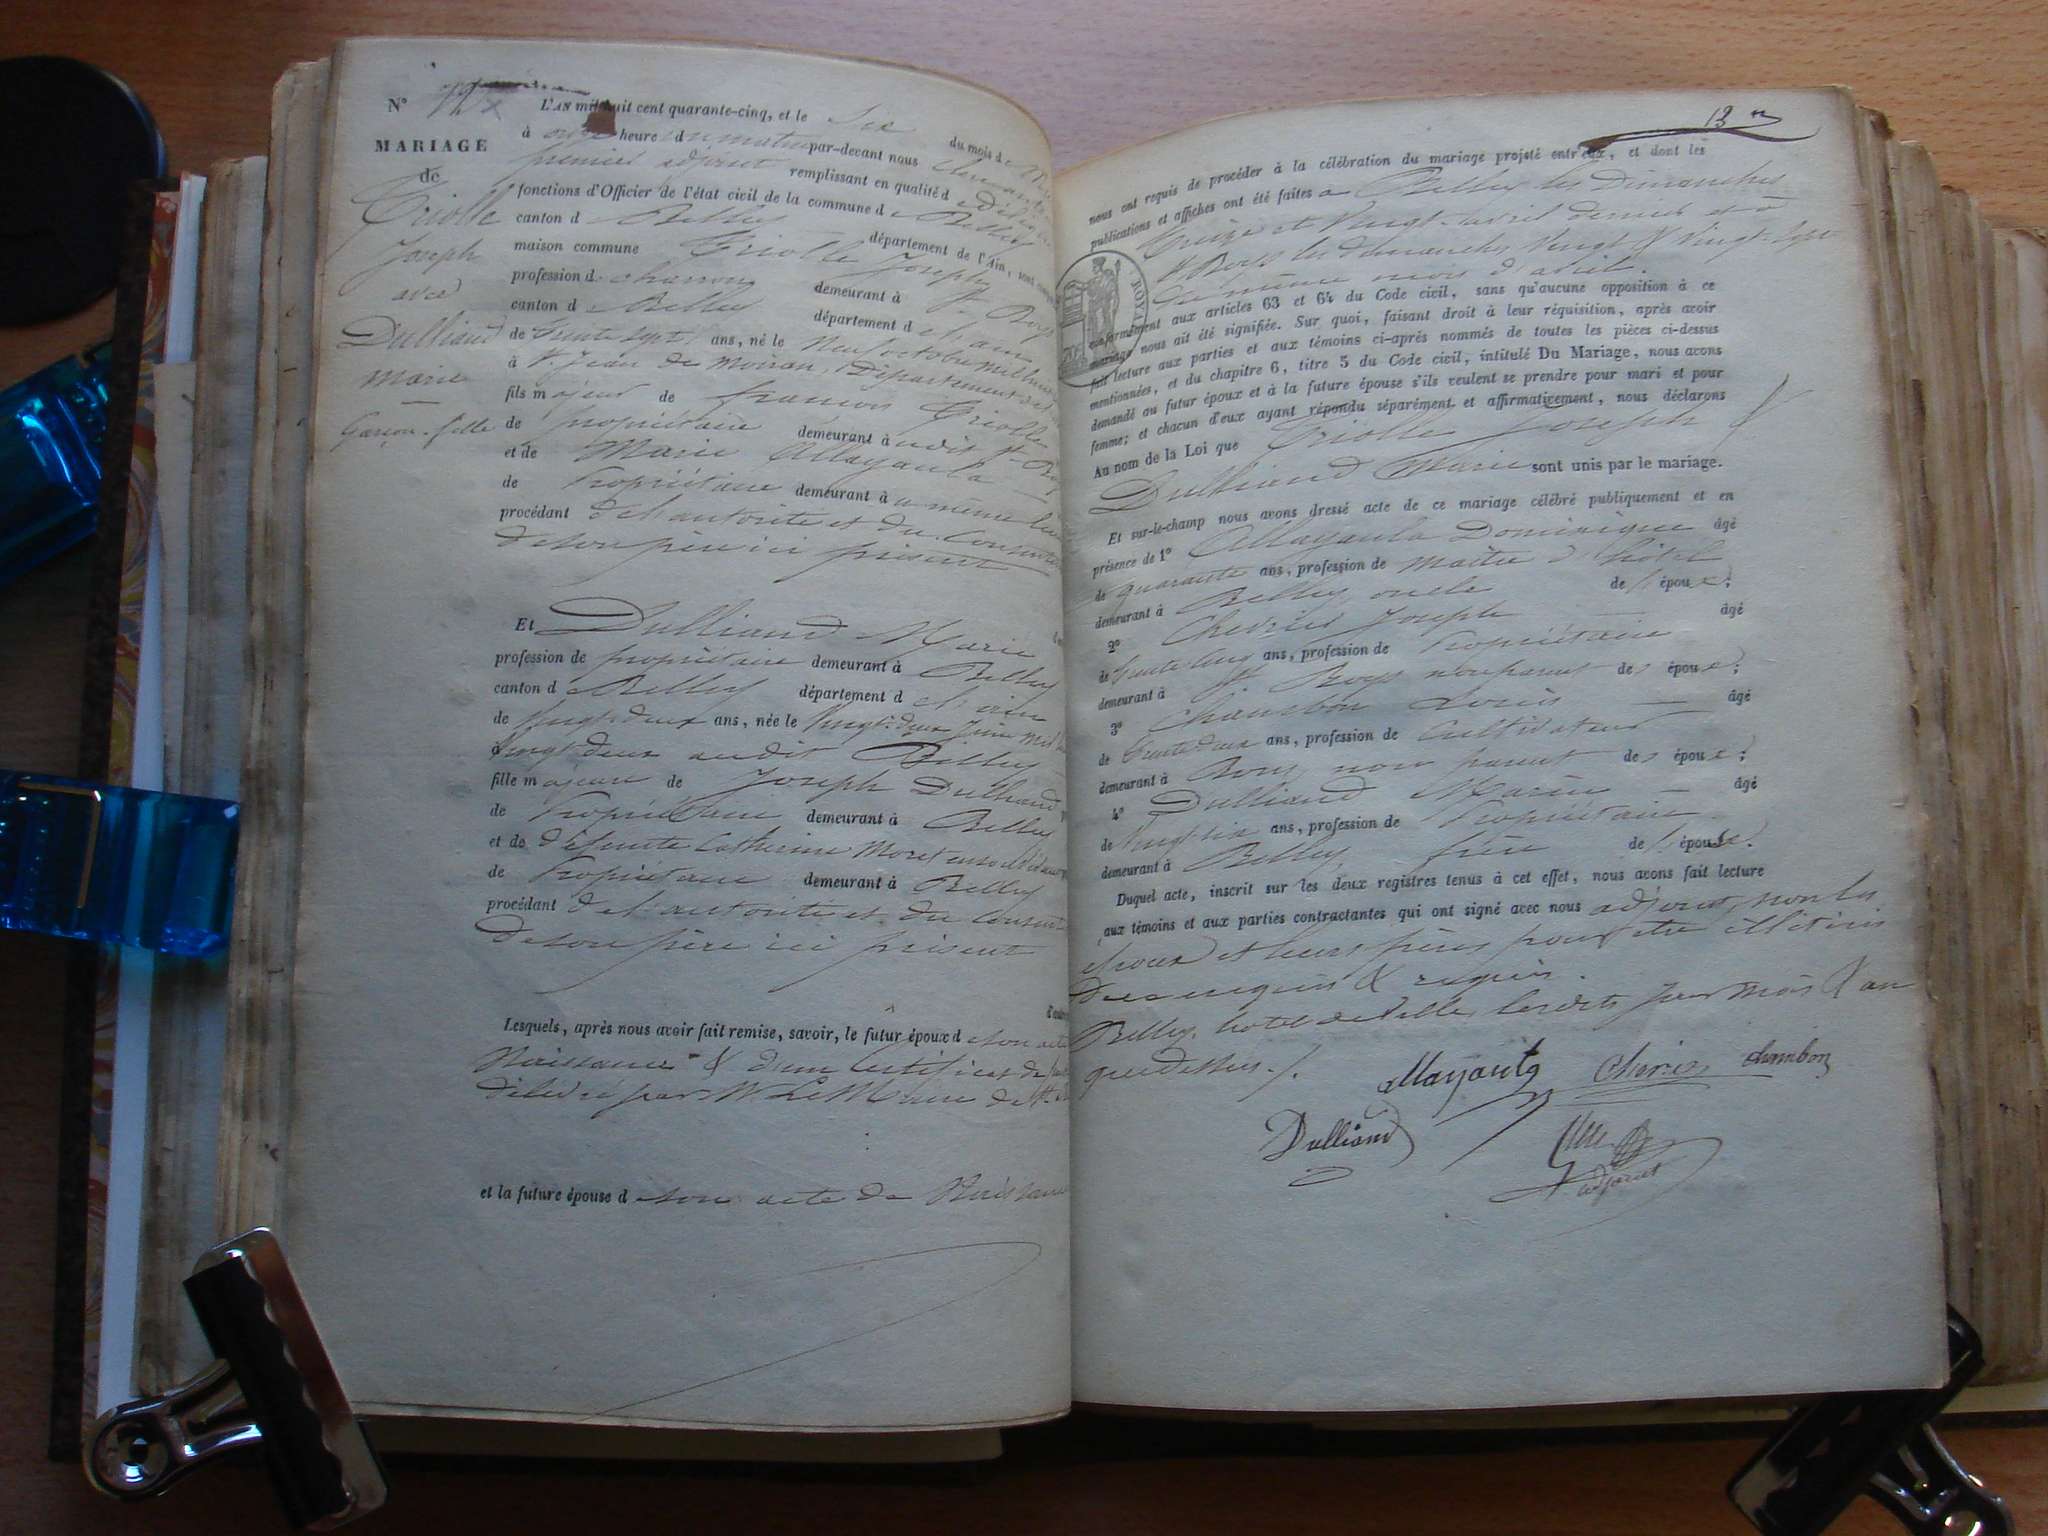 N° 12
MARIAGE
de
Triolle
Joseph
avec
Dulliand
Marie
—
Garçon - fille
L'AN mil huit cent quarante-cinq, et le Six du mois d
à onze heure du matin par-devant nous
premier adjoint remplissant en qualité d
fonctions d'Officier de l'état civil de la commune d e Belley
canton d e Belley département de l'Ain, sont
maison commune Triolle Joseph
profession d e charron demeurant à St. Boys
canton d e Belley département d e l'ain
de trente sept ans, né le Neuf octobre mil huit
à St. Jean de Moiran, Département de
fils m ajeur de francois Triolle
de propriétaire demeurant à udit St. Boys
et de Marie Allayanta
de Propriétaire demeurant à u même lieu
procédant de l'autorité et du Consente
de son père ici présent
Et Dulliand Marie
profession de propriétaire demeurant à Belley
canton d e Belley département d e l'ain
de Vingt-deux ans, née le Vingt-deux Juin mil
Vingt-deux audit Belley
fille m ajeure de Joseph Dulliand
de Propriétaire demeurant à Belley
et de défunte Catherine Moret
de Propriétaire demeurant à Belley
procédant de l'autorité et du Consent
de son père ici présent
Lesquels, après nous avoir fait remise, savoir, le futur époux d e son acte
Naissance & d'un Certificat de
délivré par M. Le Maire de St.
et la future épouse d e son acte de Naissance
13
nous ont requis de procéder à la célébration du mariage projeté entr'eux, et dont les
publications et affiches ont été faites a Belley les Dimanches
treize et Vingt avril dernier et à
St Boys les dimanches Vingt & Vingt-sept
du même mois d'avril.
conformément aux articles 63 et 64 du Code civil, sans qu'aucune opposition à ce
mariage nous ait été signifiée. Sur quoi, faisant droit à leur réquisition, après avoir
fait lecture aux parties et aux témoins ci-après nommés de toutes les pièces ci-dessus
mentionnées, et du chapitre 6, titre 5 du Code civil, intitulé Du Mariage, nous avons
demandé au futur époux et à la future épouse s'ils veulent se prendre pour mari et pour
femme; et chacun d'eux ayant répondu séparément et affirmativement, nous déclarons
Au nom de la Loi que Triolle Joseph &
Dulliand Marie sont unis par le mariage.
Et sur-le-champ nous avons dressé acte de ce mariage célébré publiquement et en
présence de 1° Allayanta Dominique âgé
de quarante ans, profession de Maître d'hôtel
demeurant à Belley oncle de l' époux;
2° Joseph — âgé
de trente cinq ans, profession de Propriétaire
demeurant à St Boys non parent des époux;
3° Chambon Louis — âgé
de trente deux ans, profession de Cultivateur
demeurant à Boys non parent des époux;
4° Dulliand — âgé
de Vingt six ans, profession de Propriétaire
demeurant à Belley frère de l' épouse.
Duquel acte, inscrit sur les deux registres tenus à cet effet, nous avons fait lecture
aux témoins et aux parties contractantes qui ont signé avec nous adjoint, non les
époux et leurs pères pour être illétérés
de ce enquis & requis.
Belley, hôtel de Ville, lesdits jour mois & an
que dessus./.
Allayanta chambon
Dulliand
adjoint